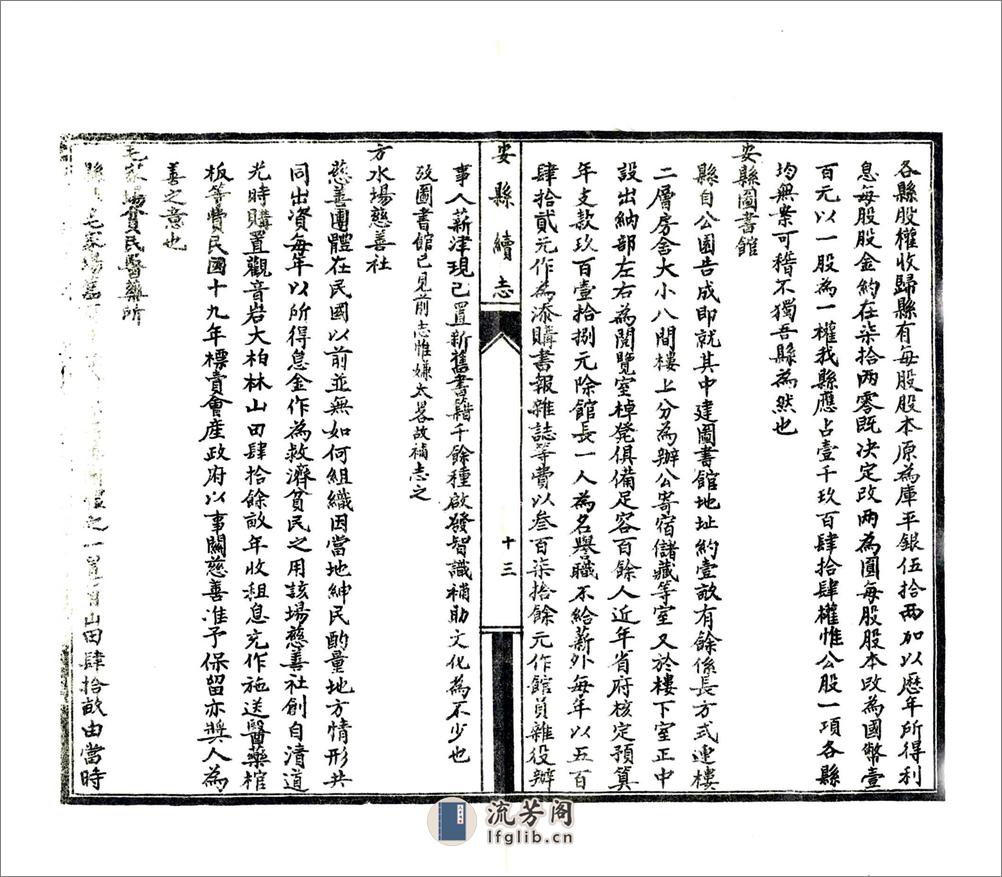 各縣股權收歸縣有每股股本原為庫平銀伍拾兩加以歷年所得利
息每股股金約在柒拾兩零既決定改兩為圓每股股本改為國幣壹
百元以一股為一權我縣應占壹千玖百肆拾肆權惟公股一項各縣
均無案可稽不獨吾縣為然也
安縣圖書館
縣自公園告成即就其中建圖書館地址約壹畝有餘係長方式連樓
二層房舍大小八間樓上分為辦公寄宿儲藏等室又於樓下室正中
設出納部左右為閱覽室棹凳俱備足容百餘人近年省府核定預算
年支款玖百壹拾捌元除館長一人為名譽職不給薪外每年以五百
肆拾貳元作為添購書報雜誌等費以叁百柒拾餘元作館員雜役辦
安縣續志
十三
事人薪津現已置新舊書籍千餘種啟發智識補助文化為不少也
攷圖書館已見前志惟嫌太畧故補志之
方水場慈善社
慈善團體在民國以前並無如何組織因當地紳民酌量地方情形共
同出資每年以所得息金作為救濟貧民之用該場慈善社創自清道
光時購置觀音岩大柏林山田肆拾餘畝年收租息充作施送醫藥棺
板等費民國十九年標賣會產政府以事關慈善准予保留亦獎人為
善之意也
場貧民醫藥所
縣 之一置有山田肆拾畝由當時
流芳阁
lfglib.cn